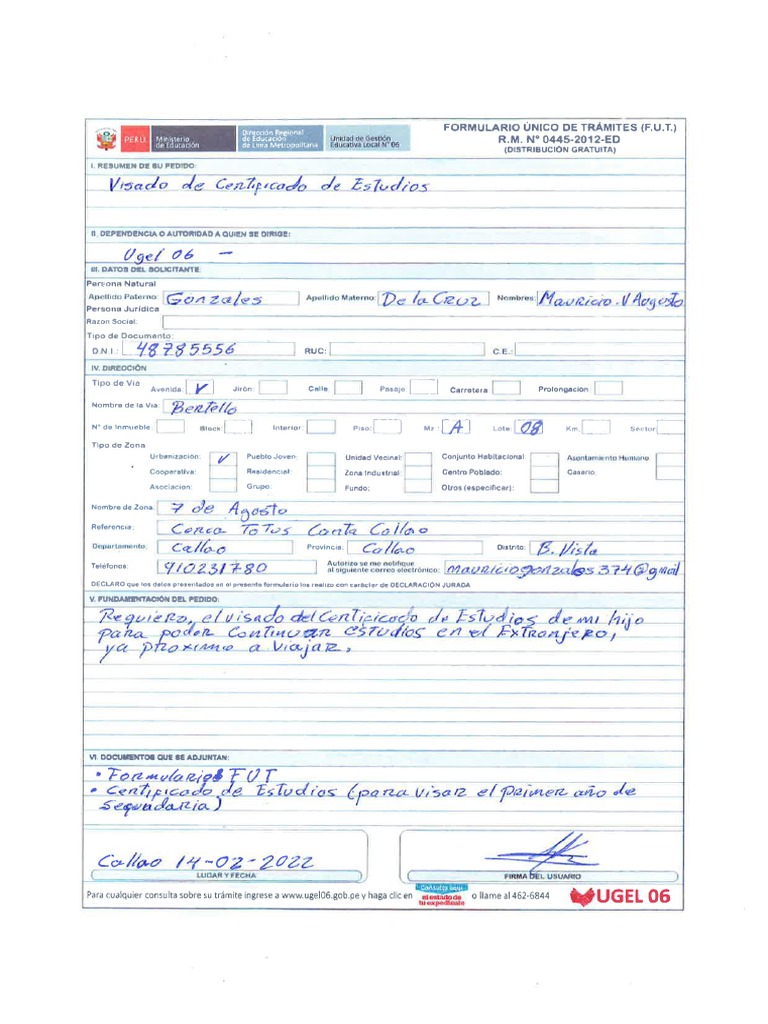 PERÚ Ministerio de Educación Dirección Regional de Educación de Lima Metropolitana Unidad de Gestión Educativa Local N° 06
FORMULARIO ÚNICO DE TRÁMITES (F.U.T.)
R.M. N° 0445-2012-ED
(DISTRIBUCIÓN GRATUITA)
I. RESUMEN DE SU PEDIDO:
Visado de Certificado de Estudios
II. DEPENDENCIA O AUTORIDAD A QUIEN SE DIRIGE:
Ugel 06 –
III. DATOS DEL SOLICITANTE:
Persona Natural
Apellido Paterno: Gonzales Apellido Materno: De la CRUZ Nombres: Mauricio. V Augosto
Persona Jurídica
Razon Social:
Tipo de Documento:
D.N.I.: 48785556 RUC: C.E.:
IV. DIRECCIÓN
Tipo de Via Avenida: V Jirón: Calle: Pasaje: Carretera: Prolongación:
Nombre de la Via: Bertello
N° de Inmueble: Block: Interior: Piso: Mz.: A Lote: 08 Km.: Sector:
Tipo de Zona
Urbanización: V Pueblo Joven: Unidad Vecinal: Conjunto Habitacional: Asentamiento Humano
Cooperativa: Residencial: Zona Industrial: Centro Poblado: Caserio:
Asociacion: Grupo: Fundo: Otros (especificar):
Nombre de Zona: 7 de Agosto
Referencia: Cerca ToTus Canta Callao
Departamento: Callao Provincia: Callao Distrito: B. Vista
Teléfonos: 910231780 Autorizo se me notifique al siguiente correo electrónico: mauriciogonzales374@gmail
DECLARO que los datos presentados en el presente formulario los realizo con carácter de DECLARACIÓN JURADA
V. FUNDAMENTACIÓN DEL PEDIDO:
Requiero, el visado del Centicicado de Estudios de mi hijo
para poder Continuar estudios en el Extranjero,
ya proximo a viajar.
VI. DOCUMENTOS QUE SE ADJUNTAN:
• Formulario FUT
• Certificado de Estudios (para visar el primer año de
Segundaria)
Callao 14-02-2022
LUGAR Y FECHA FIRMA DEL USUARIO
Para cualquier consulta sobre su trámite ingrese a www.ugel06.gob.pe y haga clic en Consulta aquí el estado de tu expediente o llame al 462-6844 UGEL 06